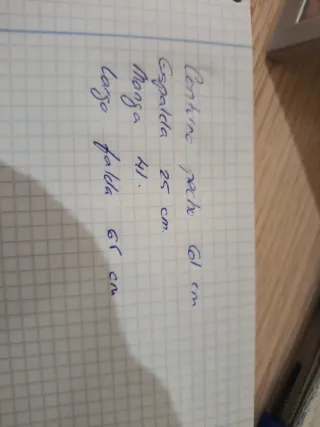 Contorno pecho 61 cm
Espalda 25 cm
Manga 41.
Largo falda 65 cm